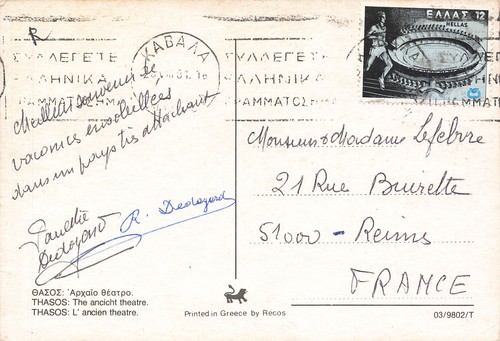 R
ΣΥΛΛΕΓΕΤΕ
ΕΛΛΗΝΙΚΑ
ΓΡΑΜΜΑΤΟΣΗΜΑ
ΚΑΒΑΛΑ
ΣΥΛΛΕΓΕΤΕ
ΕΛΛΗΝΙΚΑ
ΓΡΑΜΜΑΤΟΣΗΜΑ
ΕΛΛΑΣ 12
HELLAS
Meilleur souvenir de
vacances ensoleillées
dans un pays très attachant
Paulette
Dedoyard
R. Dedoyard
Monsieur & Madame Lefebvre
21 Rue Buirette
51000 - Reims
FRANCE
ΘΑΣΟΣ: Ἀρχαῖο θέατρο.
THASOS: The ancicht theatre.
THASOS: L' ancien theatre.
Printed in Greece by Recos
03/9802/T